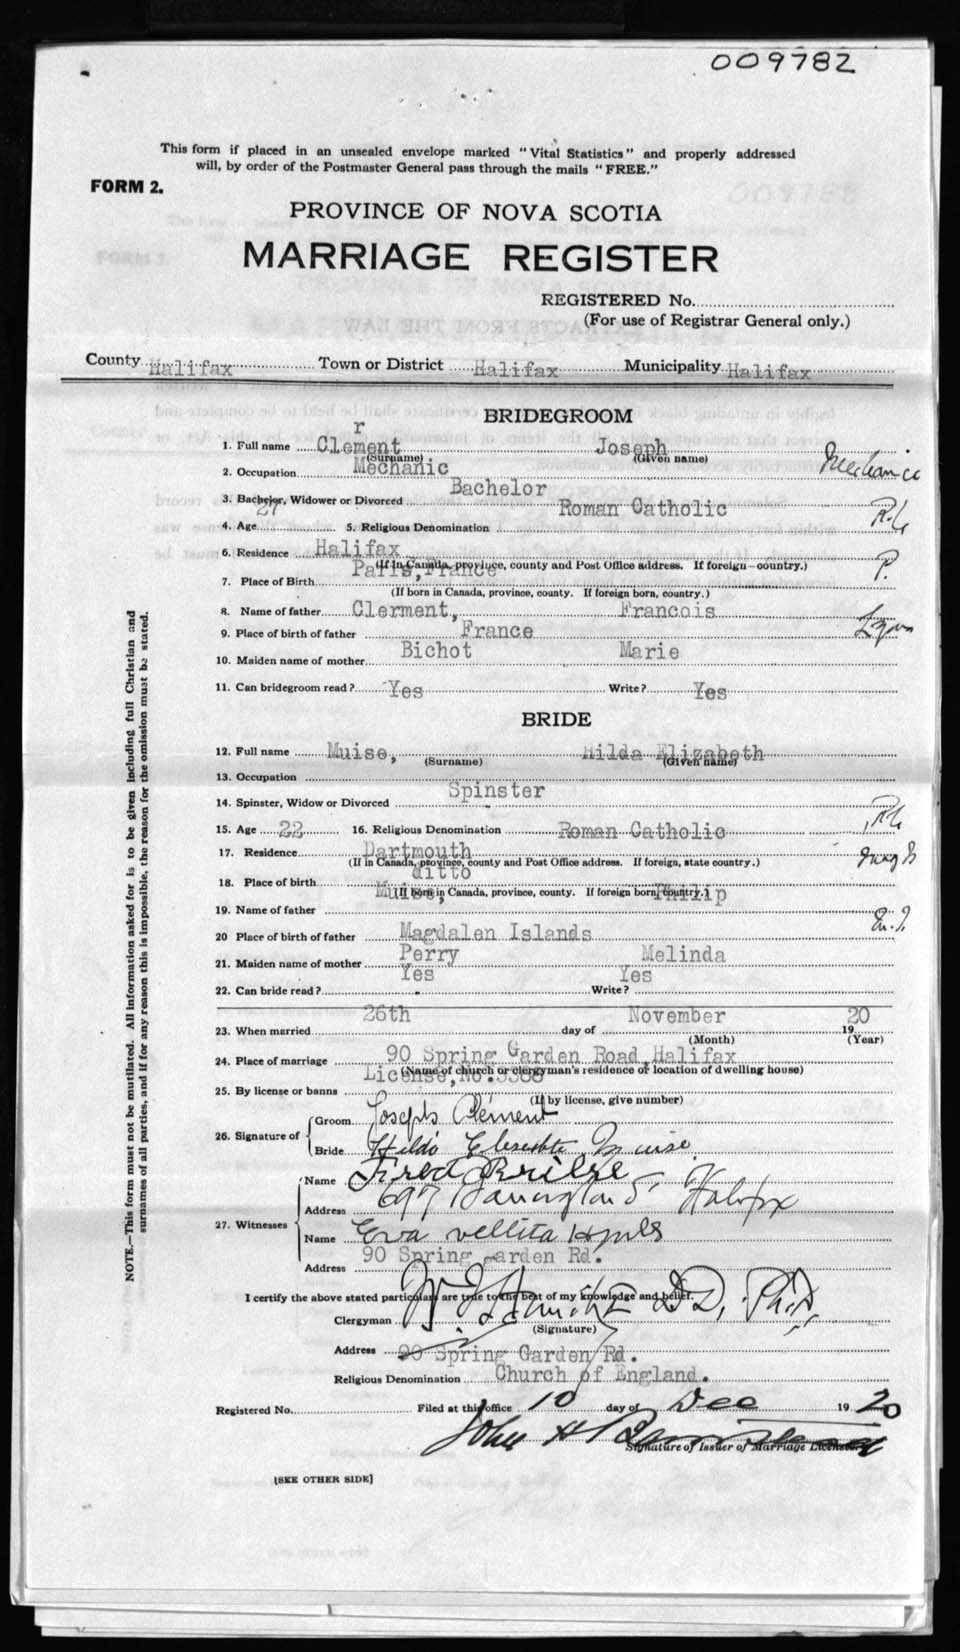 009782
This form if placed in an unsealed envelope marked "Vital Statistics" and properly addressed
will, by order of the Postmaster General pass through the mails "FREE."
FORM 2.
PROVINCE OF NOVA SCOTIA
MARRIAGE REGISTER
REGISTERED No.
(For use of Registrar General only.)
County Halifax Town or District Halifax Municipality Halifax
BRIDEGROOM
r
1. Full name Clement Joseph
(Surname) (Given name)
2. Occupation Mechanic Mechanic
3. Bachelor, Widower or Divorced Bachelor
4. Age 27 5. Religious Denomination Roman Catholic R.C
6. Residence Halifax
(If in Canada, province, county and Post Office address. If foreign—country.)
7. Place of Birth Paris, France P.
(If born in Canada, province, county. If foreign born, country.)
8. Name of father Clerment, Francois
9. Place of birth of father France
10. Maiden name of mother Bichot Marie
11. Can bridegroom read? Yes Write? Yes
BRIDE
12. Full name Muise, Hilda Elizabeth
(Surname) (Given name)
13. Occupation
14. Spinster, Widow or Divorced Spinster
15. Age 22 16. Religious Denomination Roman Catholic R C
17. Residence Dartmouth
(If in Canada, province, county and Post Office address. If foreign, state country.)
18. Place of birth ditto
(If born in Canada, province, county. If foreign born, country.)
19. Name of father Muise, Philip
20 Place of birth of father Magdalen Islands
21. Maiden name of mother Perry Melinda
22. Can bride read? Yes Write? Yes
23. When married 26th day of November 19 20
(Month) (Year)
24. Place of marriage 90 Spring Garden Road, Halifax
(Name of church or clergyman's residence or location of dwelling house)
25. By license or banns License, No.
(If by license, give number)
26. Signature of Groom Joseph Clément
Bride Hilda Muise
27. Witnesses Name Fred
Address 697 Barrington St Halifax
Name Eva
Address 90 Spring Garden Rd.
I certify the above stated particulars are true to the best of my knowledge and belief.
Clergyman D.D., Ph.D.
(Signature)
Address 90 Spring Garden Rd.
Religious Denomination Church of England.
Registered No. Filed at this office 10 day of Dec 19 20
John H
Signature of Issuer of Marriage Licenses.
[SEE OTHER SIDE]
NOTE.—This form must not be mutilated. All information asked for is to be given including full Christian and
surnames of all parties, and if for any reason this is impossible, the reason for the omission must be stated.